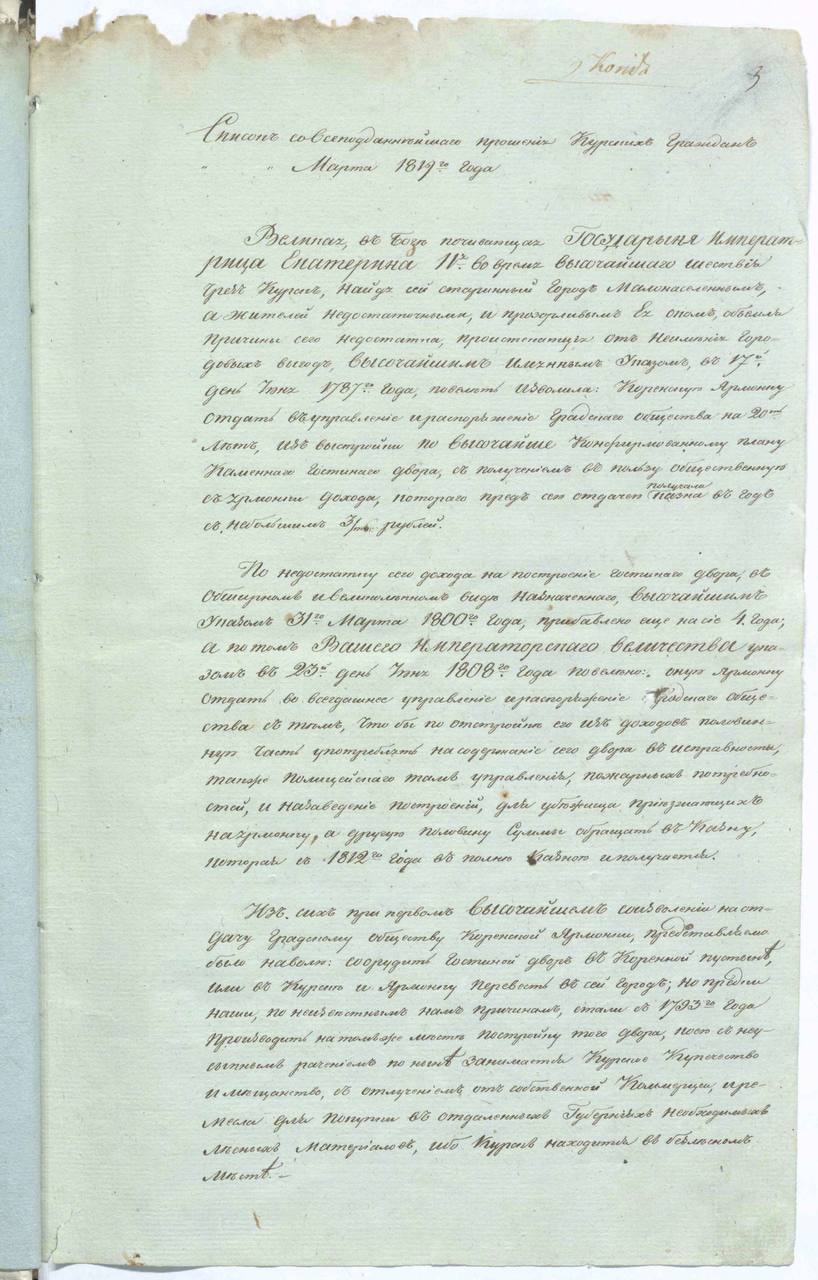 Копія
3
Списокъ со Всеподданнѣйшаго прошенія Курскихъ Гражданъ
" " Марта 1819го Года
Великая, въ Бозѣ почивающая ГОСУДАРЫНЯ Императ-
рица Екатерина IIя. Во время ВЫСОЧАЙШАГО шествія
чрезъ Курскъ, найдя сей старинный Городъ Малонаселеннымъ,
а жителей недостаточными, и прозорливымъ Ея окомъ, объемля
причины сего недостатка, проистекающія отъ неимѣнія Горо-
довыхъ выгодъ, ВЫСОЧАЙШИМЪ имяннымъ Указомъ, въ 17й.
день Іюня 1787го Года, повелѣть изволила: Коренную Ярмонку
отдать въ управленіе и распоряженіе Градскаго общества на 20ть
лѣтъ, изъ выстройки по ВЫСОЧАЙШЕ Конфирмованному плану
Каменнаго Гостинаго двора, съ полученіемъ въ пользу общественную
съ ярмонки дохода, котораго предъ сею отдачею получала казна въ годъ
съ небольшимъ 3/т. рублей.
По недостатку сего дохода на построеніе гостинаго двора, въ
обширномъ и великолѣпномъ видѣ назначеннаго, ВЫСОЧАЙШИМЪ
Указомъ 31го Марта 1800го Года, прибавлено еще на сіе 4. Года;
а по томъ Вашего Императорскаго Величества ука-
зомъ въ 23й день Іюня 1808го Года повелѣно: оную Ярмонку
отдать во всегдашнее управленіе и распоряженіе Градскаго обще-
ства съ тѣмъ, что бы по отстройкѣ его изъ доходовъ половин-
ную часть употреблять на содержаніе сего двора въ исправности,
также полицейскаго тамъ управленія, пожарныхъ потребно-
стей, и на заведеніе построеній, для убѣжища пріезжающихъ
на ярмонку, а другую половину Суммы обращать въ Казну,
которая съ 1812го Года въ полню Казною и получается.
Изъ сихъ при первомъ ВЫСОЧАЙШЕМЪ соизволеніи на от-
дачу Градскому обществу Коренной Ярмонки, представляемо
было на волю: соорудить Гостиной дворъ въ Коренной пустынѣ,
или въ Курскѣ и Ярмонку перевесть въ сей Городъ; но предки
наши, по неизвѣстнымъ намъ причинамъ, стали съ 1793го Года
производить на томъ же мѣстѣ постройку того двора, коею съ неу-
сыпнымъ раченіемъ по нынѣ занимается Курское Купечество
и мѣщанство, съ отлученіемъ отъ собственной Коммерціи, и ре-
месла для покупки въ отдаленныхъ Губерніяхъ необходимыхъ
лѣсныхъ матеріаловъ, ибо Курскъ находится въ безлѣсномъ
мѣстѣ.—